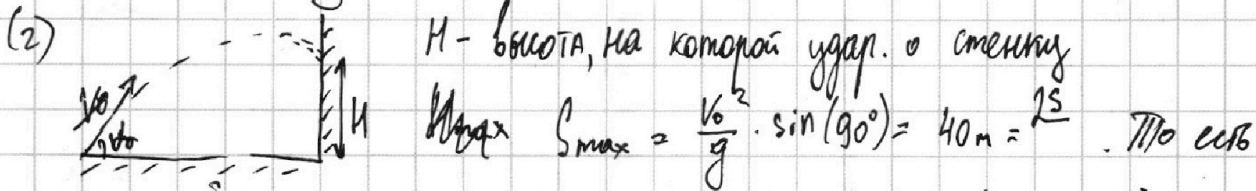 (2) H - высота, на которой удар. о стенку
V₀ H S max = V₀²/g · sin(90°) = 40м = 2S. То есть